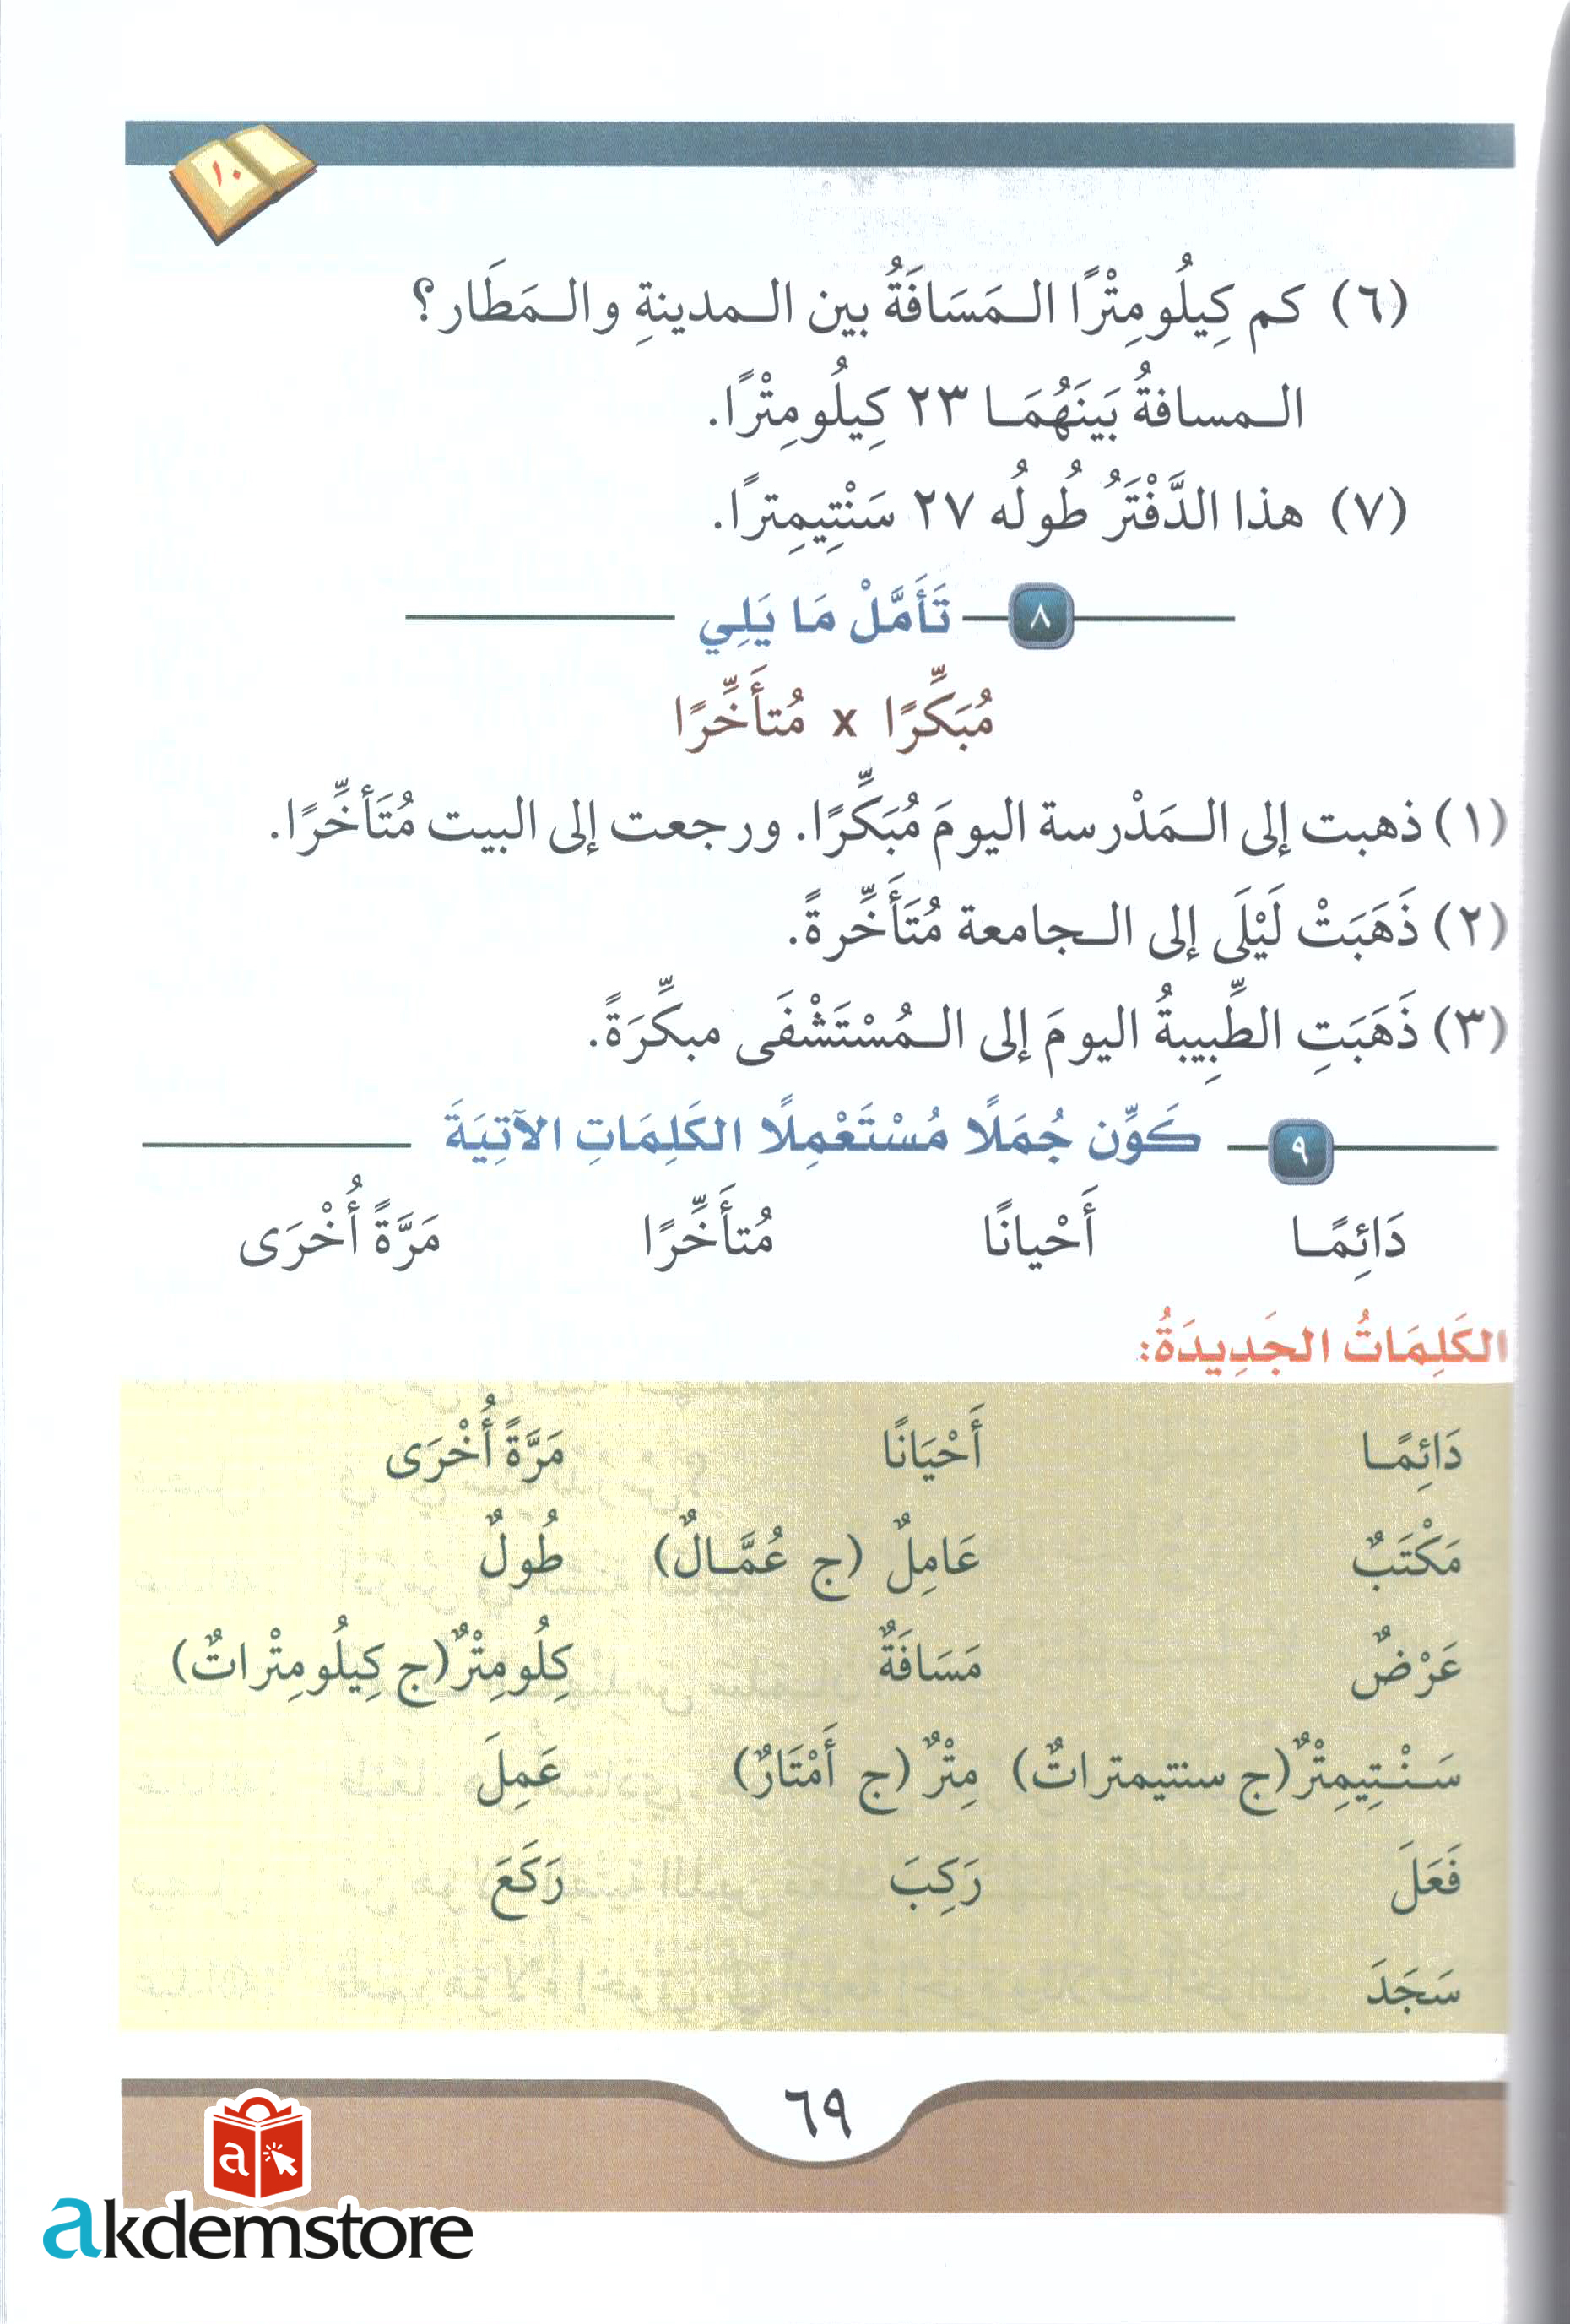 ١٠
(٦) كم كِيلُومِتْرًا الـمَسَافَةُ بين الـمدينةِ والـمَطَار؟
الـمسافةُ بَينَهُمَـا ٢٣ كِيلُومِتْرًا.
(٧) هذا الدَّفْتَرُ طُولُه ٢٧ سَنْتِيمِترًا.
٨ تَأَمَّلْ مَا يَلِي
مُبَكِّرًا x مُتأَخِّرًا
(١) ذهبت إلى الـمَدْرسة اليومَ مُبَكِّرًا. ورجعت إلى البيت مُتَأخِّرًا.
(٢) ذَهَبَتْ لَيْلَى إلى الـجامعة مُتَأَخِّرةً.
(٣) ذَهَبَتِ الطَّبِيبةُ اليومَ إلى الـمُسْتَشْفَى مبكِّرَةً.
٩ كَوِّن جُمَلًا مُسْتَعْمِلًا الكَلِمَاتِ الآتِيَةَ
دَائِمًـا أَحْيانًا مُتأَخِّرًا مَرَّةً أُخْرَى
الكَلِمَاتُ الجَدِيدَةُ:
دَائِمًـا أَحْيَانًا مَرَّةً أُخْرَى
مَكْتَبٌ عَامِلٌ (ج عُمَّـالٌ) طُولٌ
عَرْضٌ مَسَافَةٌ كِلُومِتْرٌ (ج كِيلُومِتْراتٌ)
سَـنْـتِيمِتْرٌ (ج سنتيمتراتٌ) مِتْرٌ (ج أَمْتَارٌ) عَمِلَ
فَعَلَ رَكِبَ رَكَعَ
سَجَدَ
٦٩
a
akdemstore